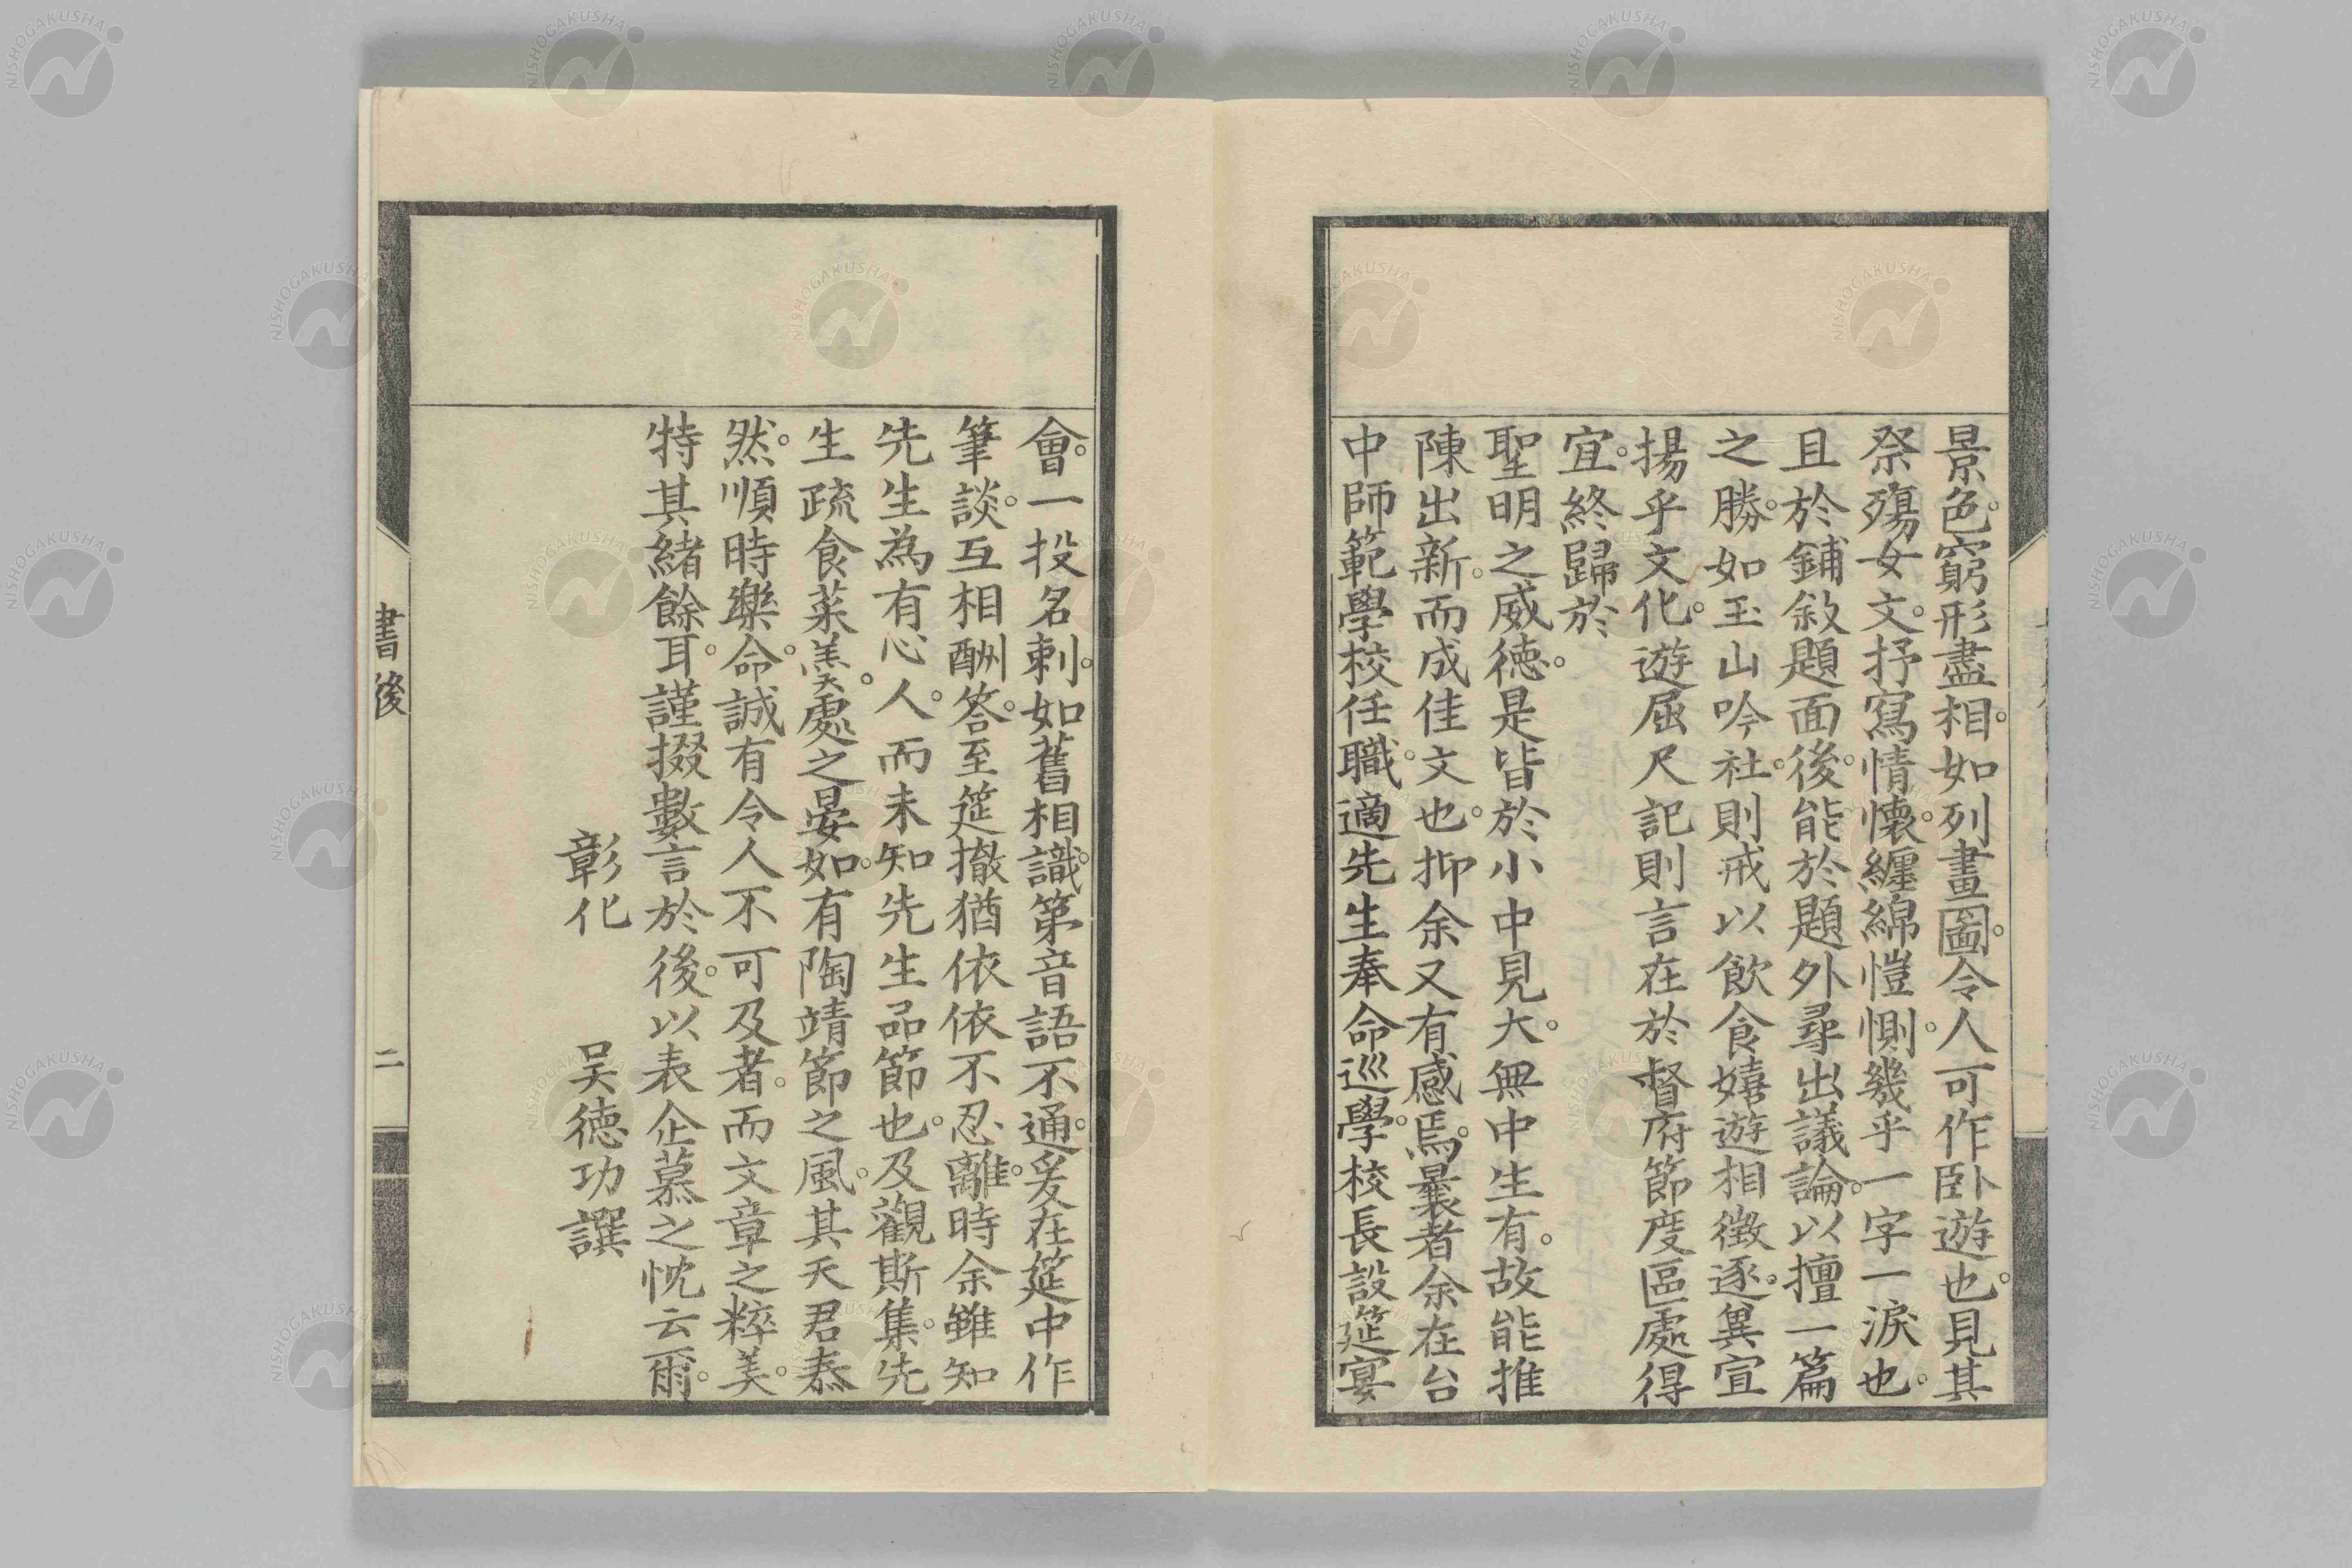 景色。窮形盡相。如列畫圖。令人可作卧遊也。見其
祭殤女文。抒寫情懷。纏綿愷惻。幾乎一字一淚也。
且於鋪敍題面後。能於題外尋出議論。以擅一篇
之勝。如玉山吟社。則戒以飲食嬉遊相徵逐。異宣
揚乎文化。遊屈尺記則言在於督府節度區處得
宜。終歸於
聖明之威德。是皆於小中見大。無中生有。故能推
陳出新。而成佳文也。抑余又有感焉。曩者余在台
中師範學校任職。適先生奉命巡學。校長設筵宴
會。一投名刺。如舊相識。第音語不通。爰在筵中作
筆談。互相酬答。至筵撤猶依依不忍離。時余雖知
先生為有心人。而未知先生品節也。及觀斯集。先
生疏食菜羹。處之晏如。有陶靖節之風。其天君泰
然。順時樂命。誠有令人不可及者。而文章之粹美。
特其緒餘耳。謹掇數言於後。以表企慕之忱云爾。
彰化 吳德功譔
書後 二
NISHOGAKUSHA